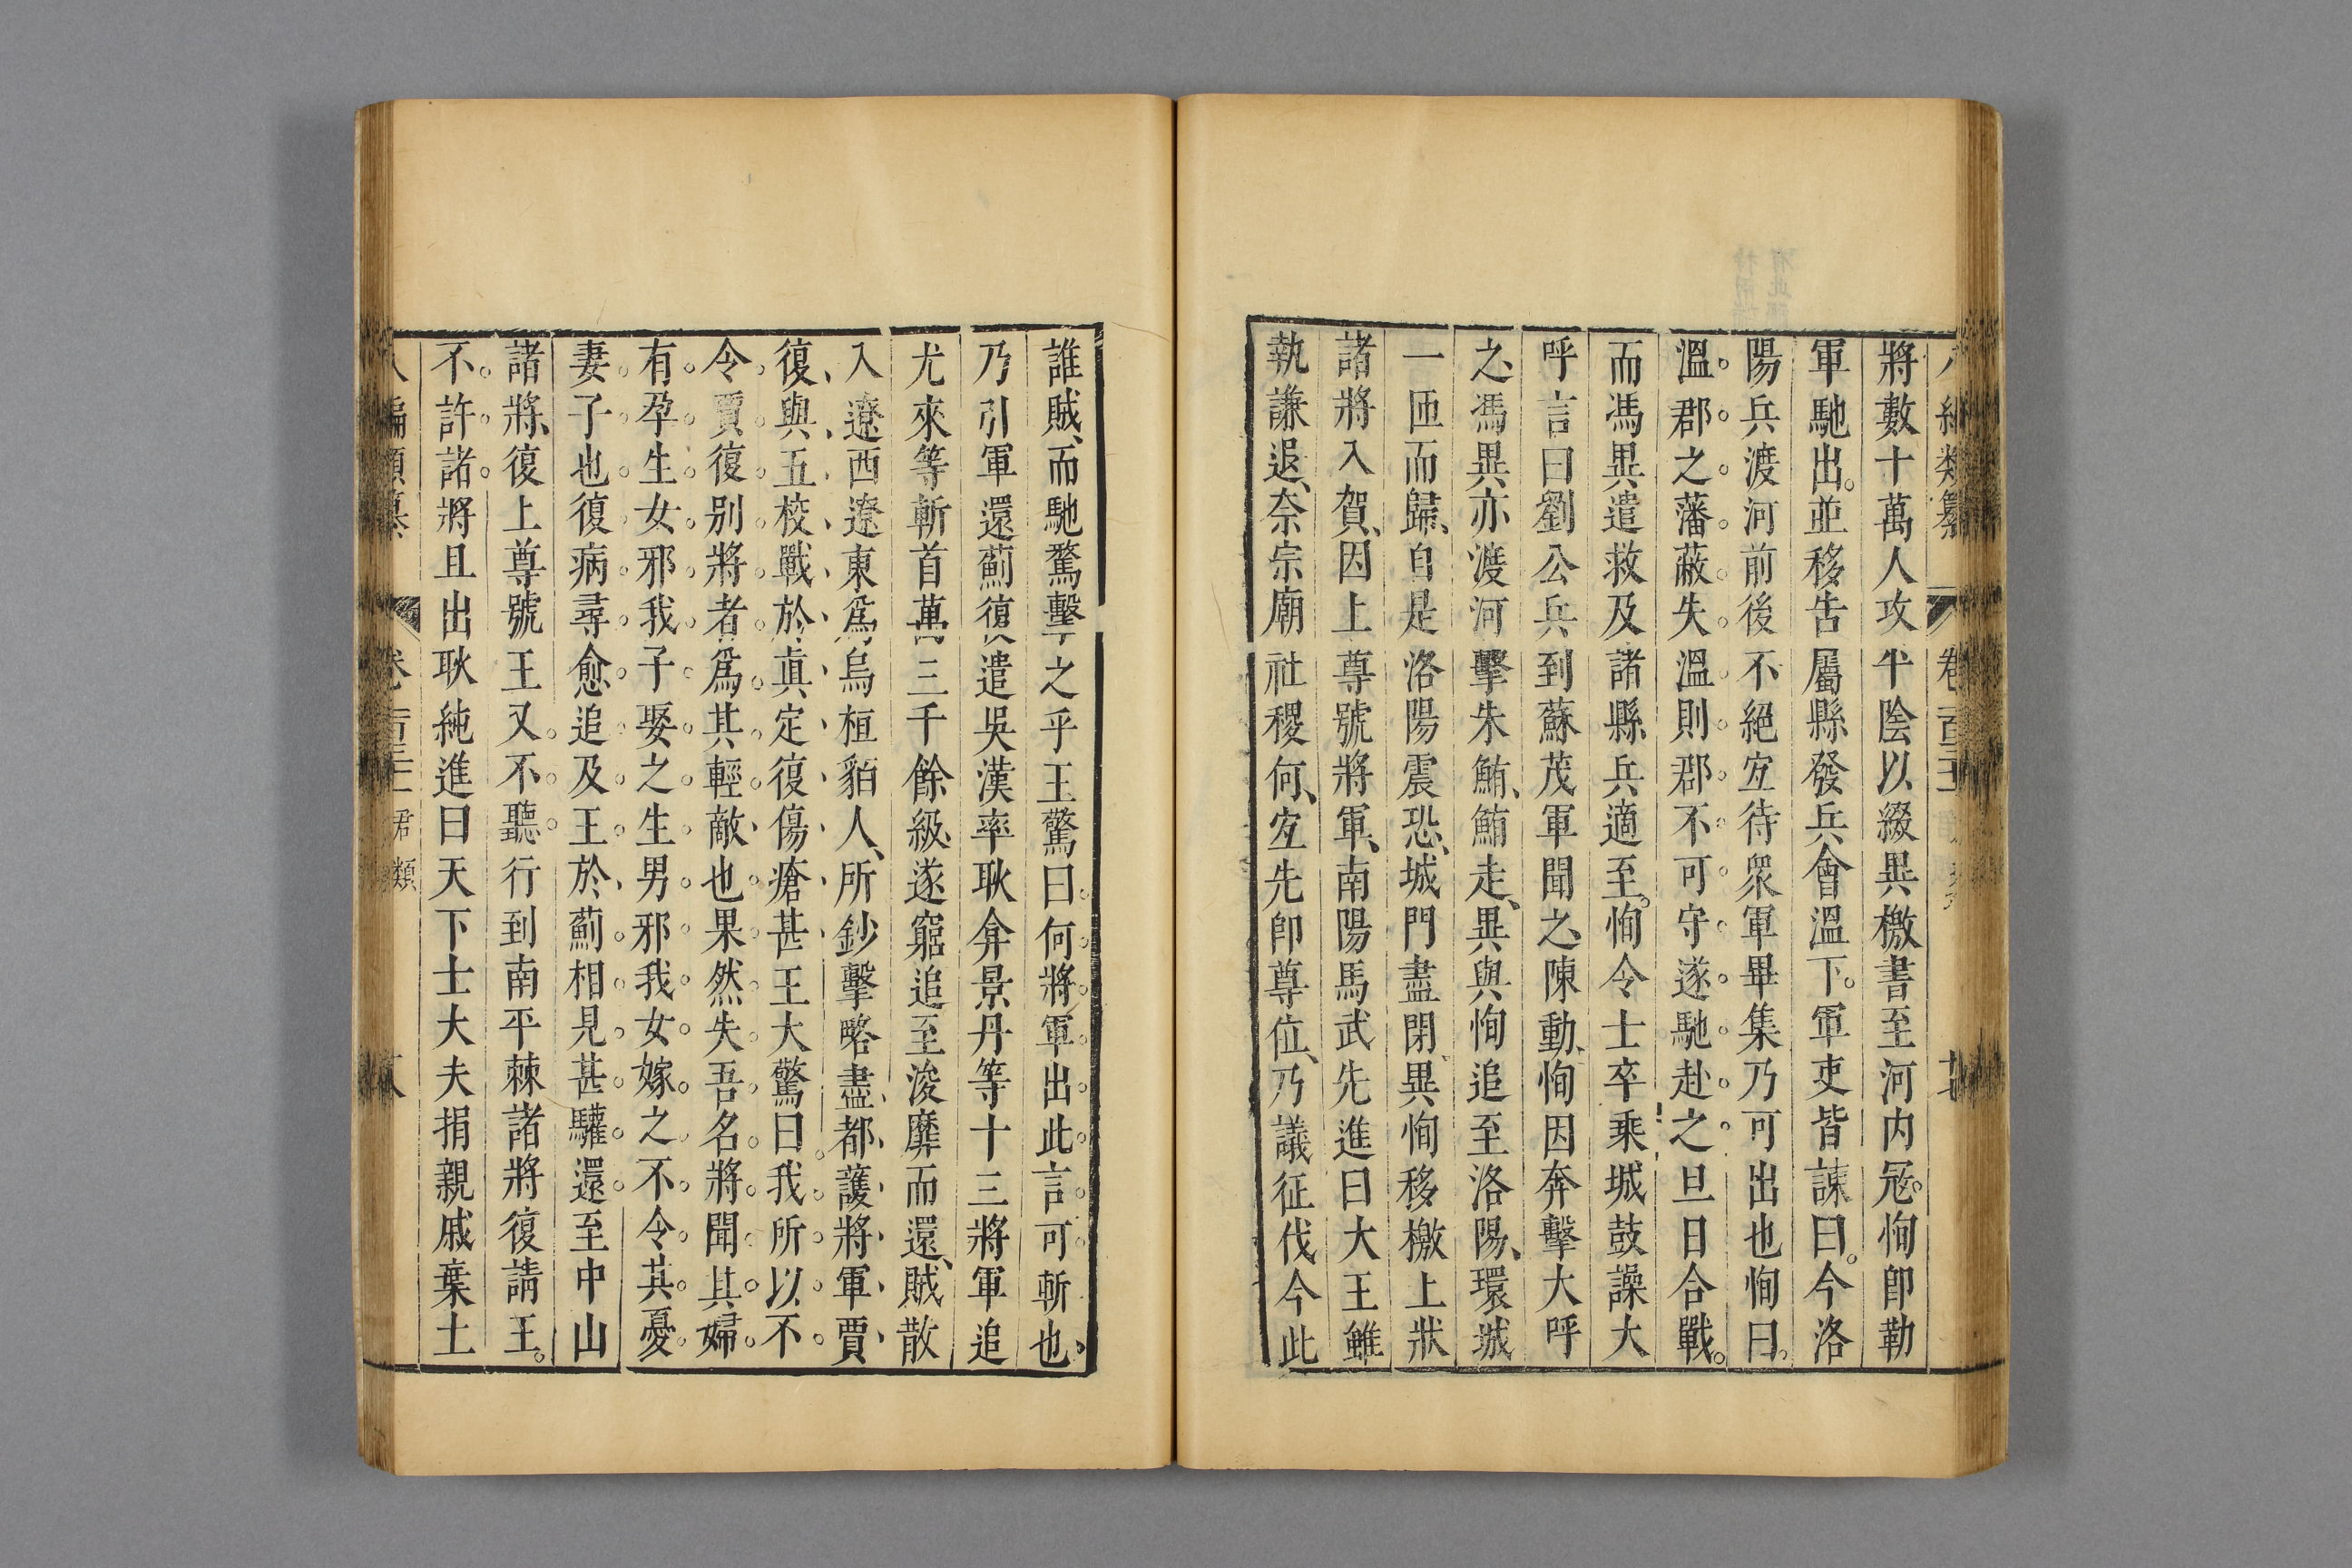 將數十萬人攻平陰以綴異檄書至河内冦恂卽勒
軍馳出。並移告屬縣發兵會溫下。軍吏皆諫曰。今洛
陽兵渡河前後不絕宐待衆軍畢集乃可出也恂曰。
溫郡之藩蔽失溫則郡不可守遂馳赴之旦日合戰。
而馮異遣救及諸縣兵適至。恂令士卒乘城鼓譟大
呼言曰劉公兵到蘇茂軍聞之、陳動、恂因奔擊大呼
之、馮異亦渡河擊朱鮪、鮪走、異與恂追至洛陽、環城
一匝而歸、自是洛陽震恐、城門盡閉異恂移檄上狀
諸將入賀、因上尊號將軍、南陽馬武先進曰大王雖
執謙退、奈宗廟社稷何、宐先卽尊位、乃議征伐今此
誰賊、而馳騖擊之乎王驚曰何將軍出此言可斬也
乃引軍還薊復遣吳漢率耿弇景丹等十三將軍追
尤來等斬首萬三千餘級、遂窮追至浚靡而還、賊散
入遼西遼東爲烏桓貊人、所鈔擊略盡都護將軍賈
復與五校戰於眞定復傷瘡甚王大驚曰我所以不
令賈復别將者爲其輕敵也果然失吾名將聞其婦
有孕生女邪我子娶之生男邪我女嫁之不令其憂
妻子也復病尋愈追及王於薊相見甚驩還至中山
諸將、復上尊號王又不聽行到南平棘諸將復請王。
不許諸將且出耿純進曰天下士大夫捐親戚棄土
卷一百三十一 君類